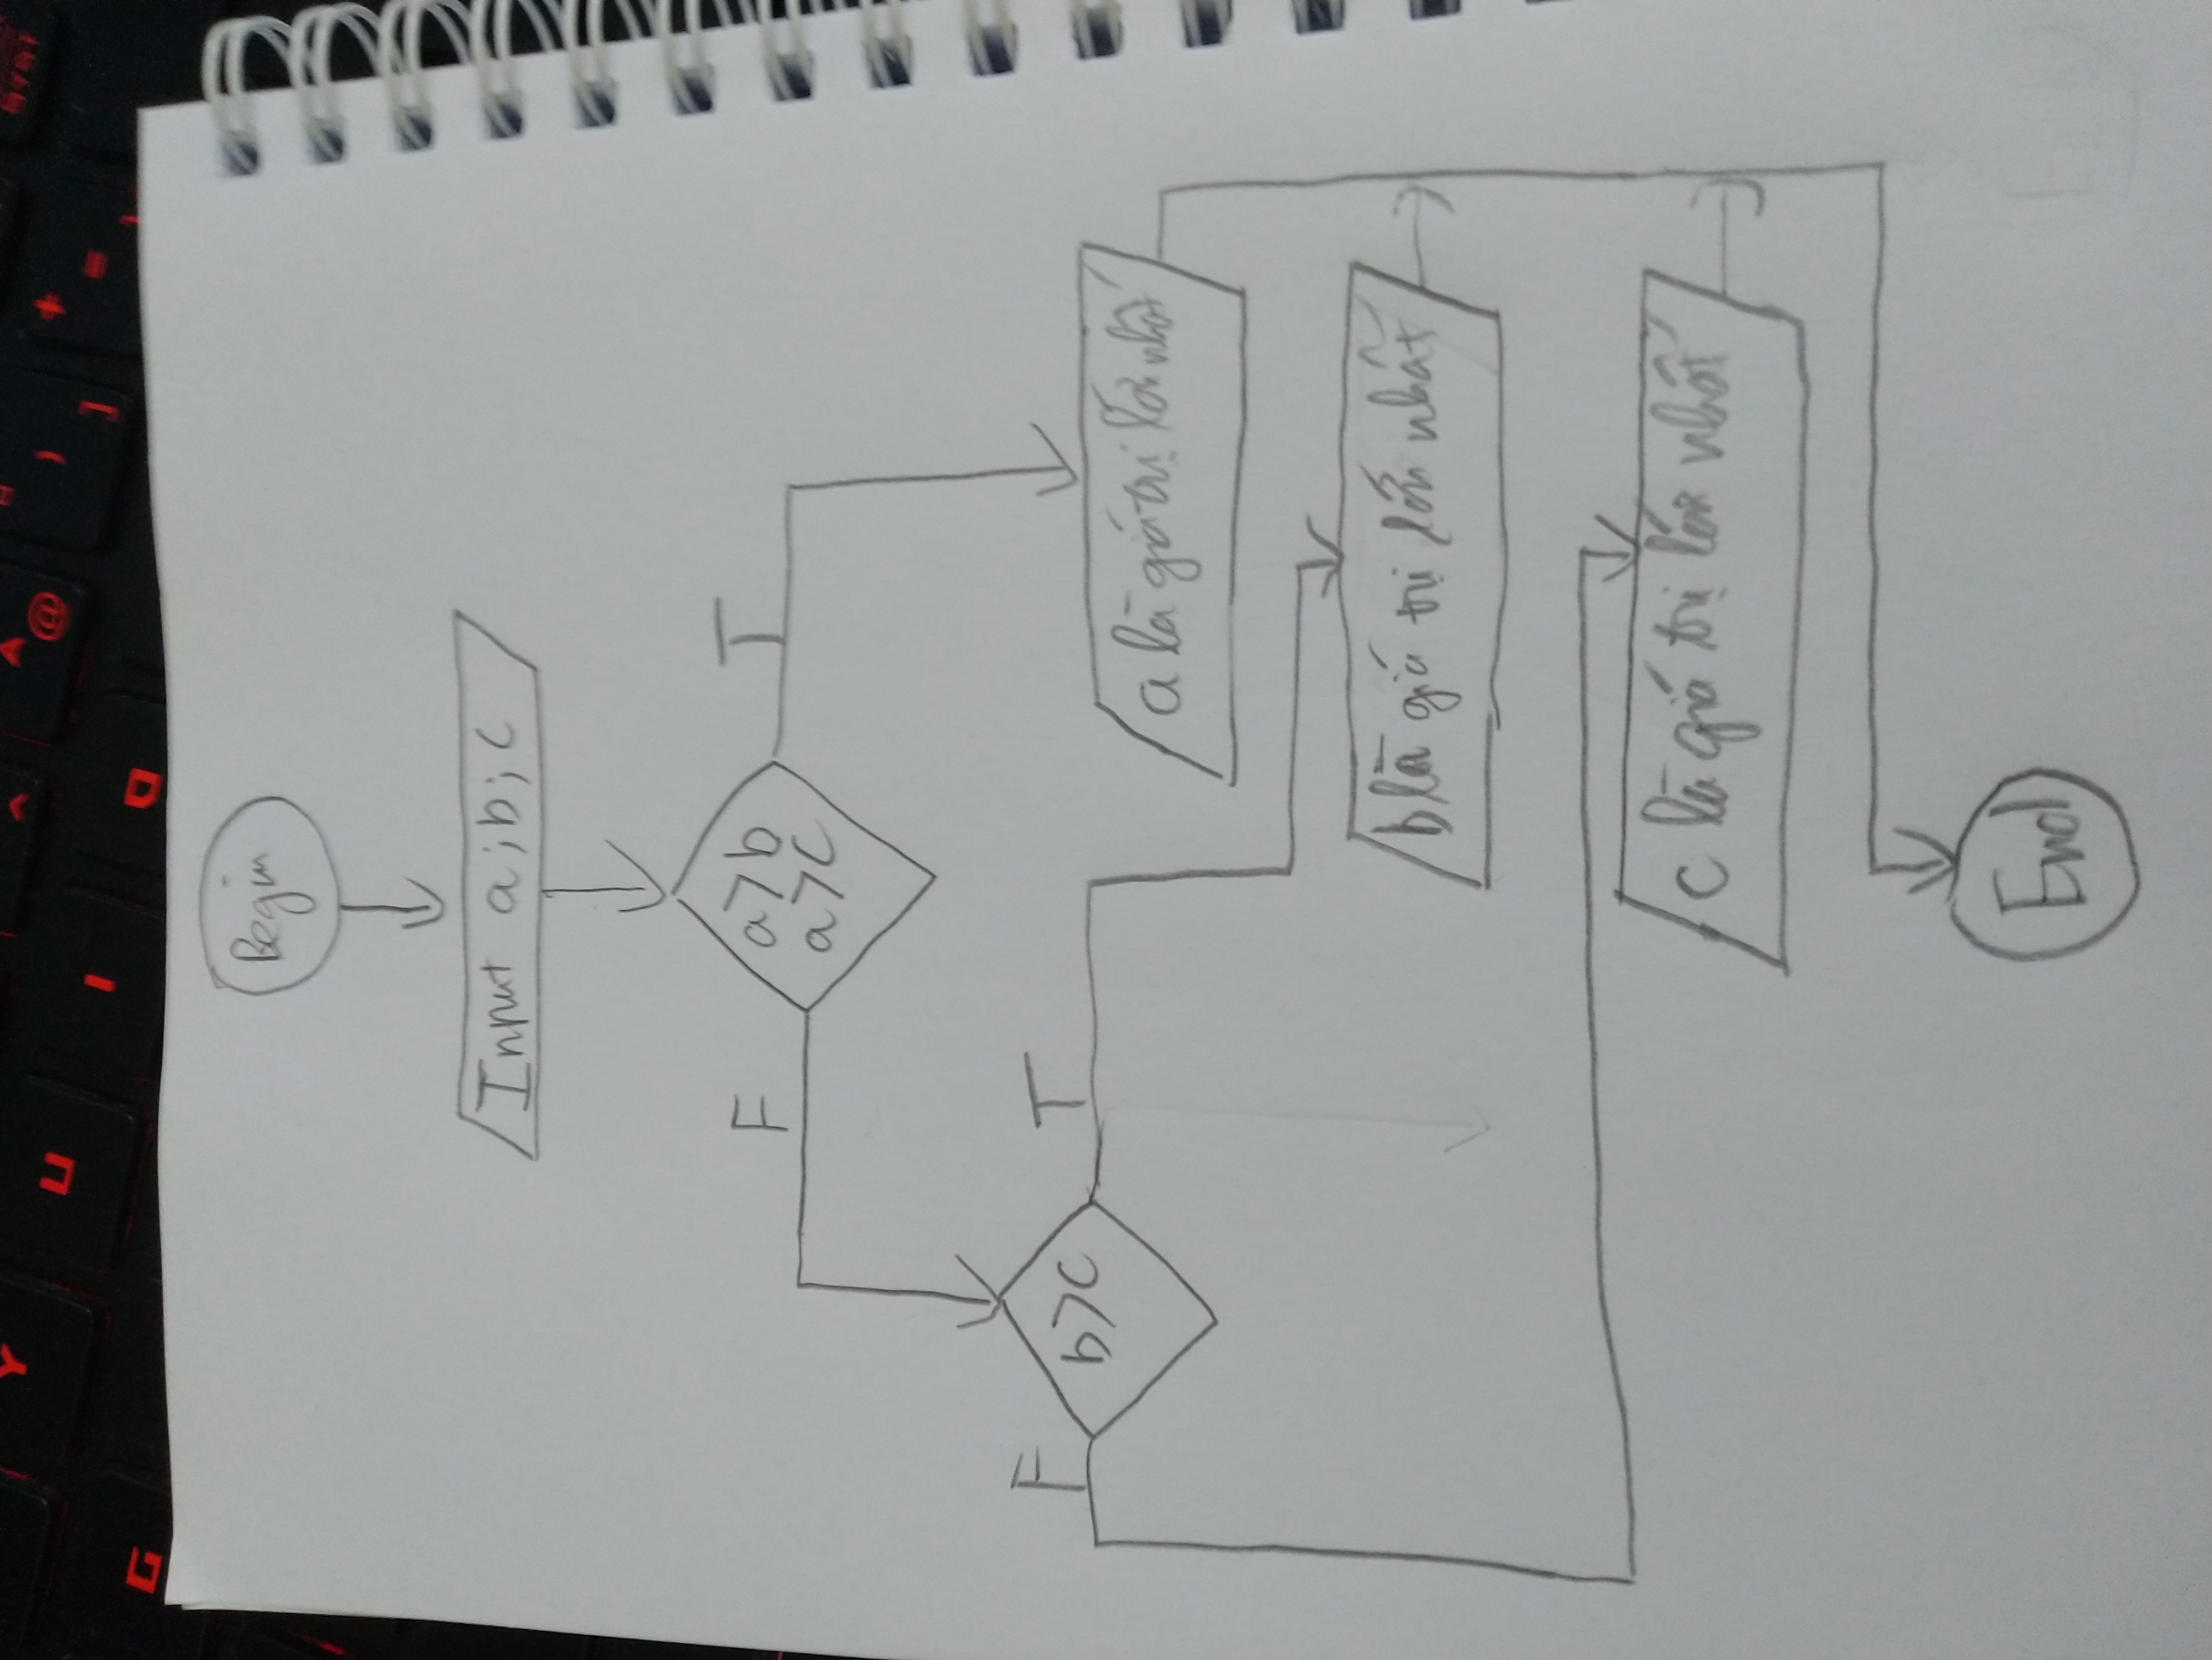 Y
U
I
O
G
@
)
]
+
=
Begin
Input a;b;c
a>b
a>c
F
T
b>c
F
T
a là giá trị lớn nhất
b là giá trị lớn nhất
c là giá trị lớn nhất
End